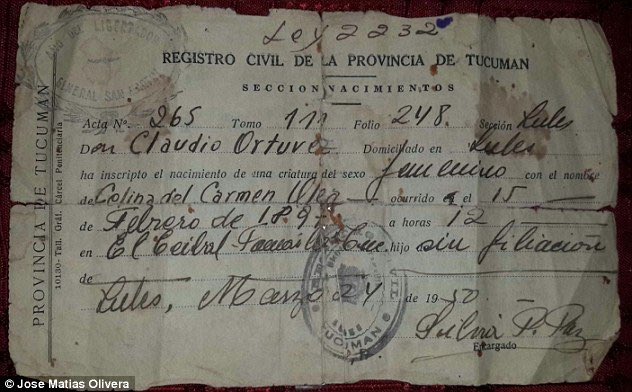 Ley 2232
AÑO DEL LIBERTADOR
GENERAL SAN MARTIN
REGISTRO CIVIL DE LA PROVINCIA DE TUCUMAN
SECCION NACIMIENTOS
Acta Nº 265 Tomo 111 Folio 248 Sección Lules
Don Claudio Ortuvez Domiciliado en Lules
ha inscripto el nacimiento de una criatura del sexo femenino con el nombre
de Colina del Carmen ocurrido el 15
de Febrero de 189 a horas 12
en El Ceibal hijo sin filiación
de
Lules, Marzo 24 de 1950
Silvia P. Paz
Encargado
PROVINCIA DE TUCUMAN
10130-Tall. Gráf. Cárcel Penitenciaría
TUCUMAN
© Jose Matias Olivera